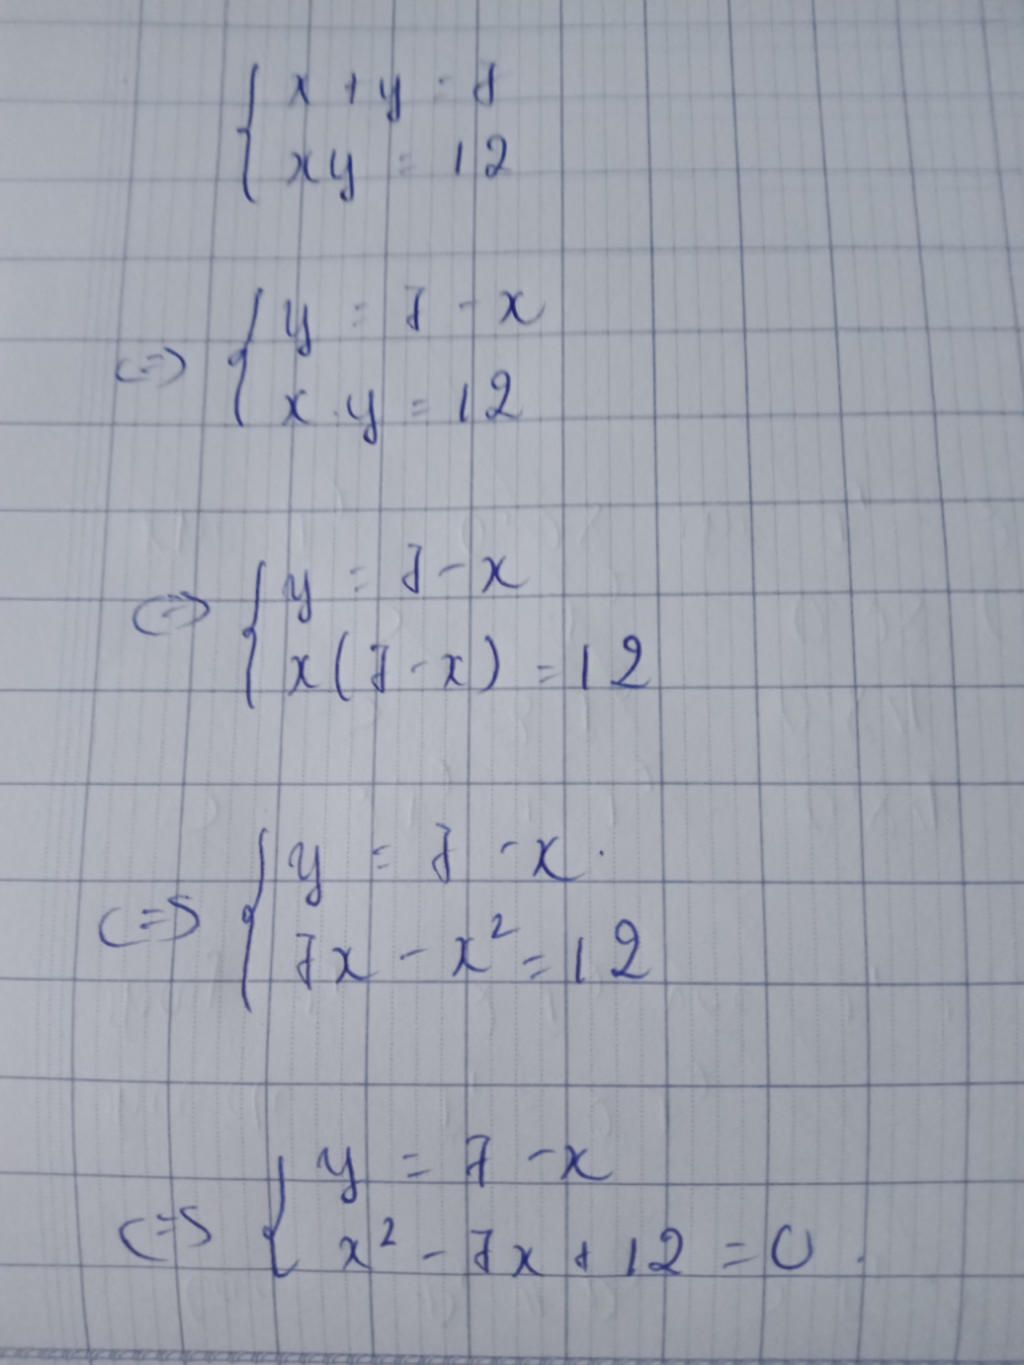 { x + y = 7
xy = 12
<=> { y = 7 - x
x.y = 12
<=> { y = 7 - x
x(7 - x) = 12
<=> { y = 7 - x.
7x - x² = 12
<=> { y = 7 - x
x² - 7x + 12 = 0.